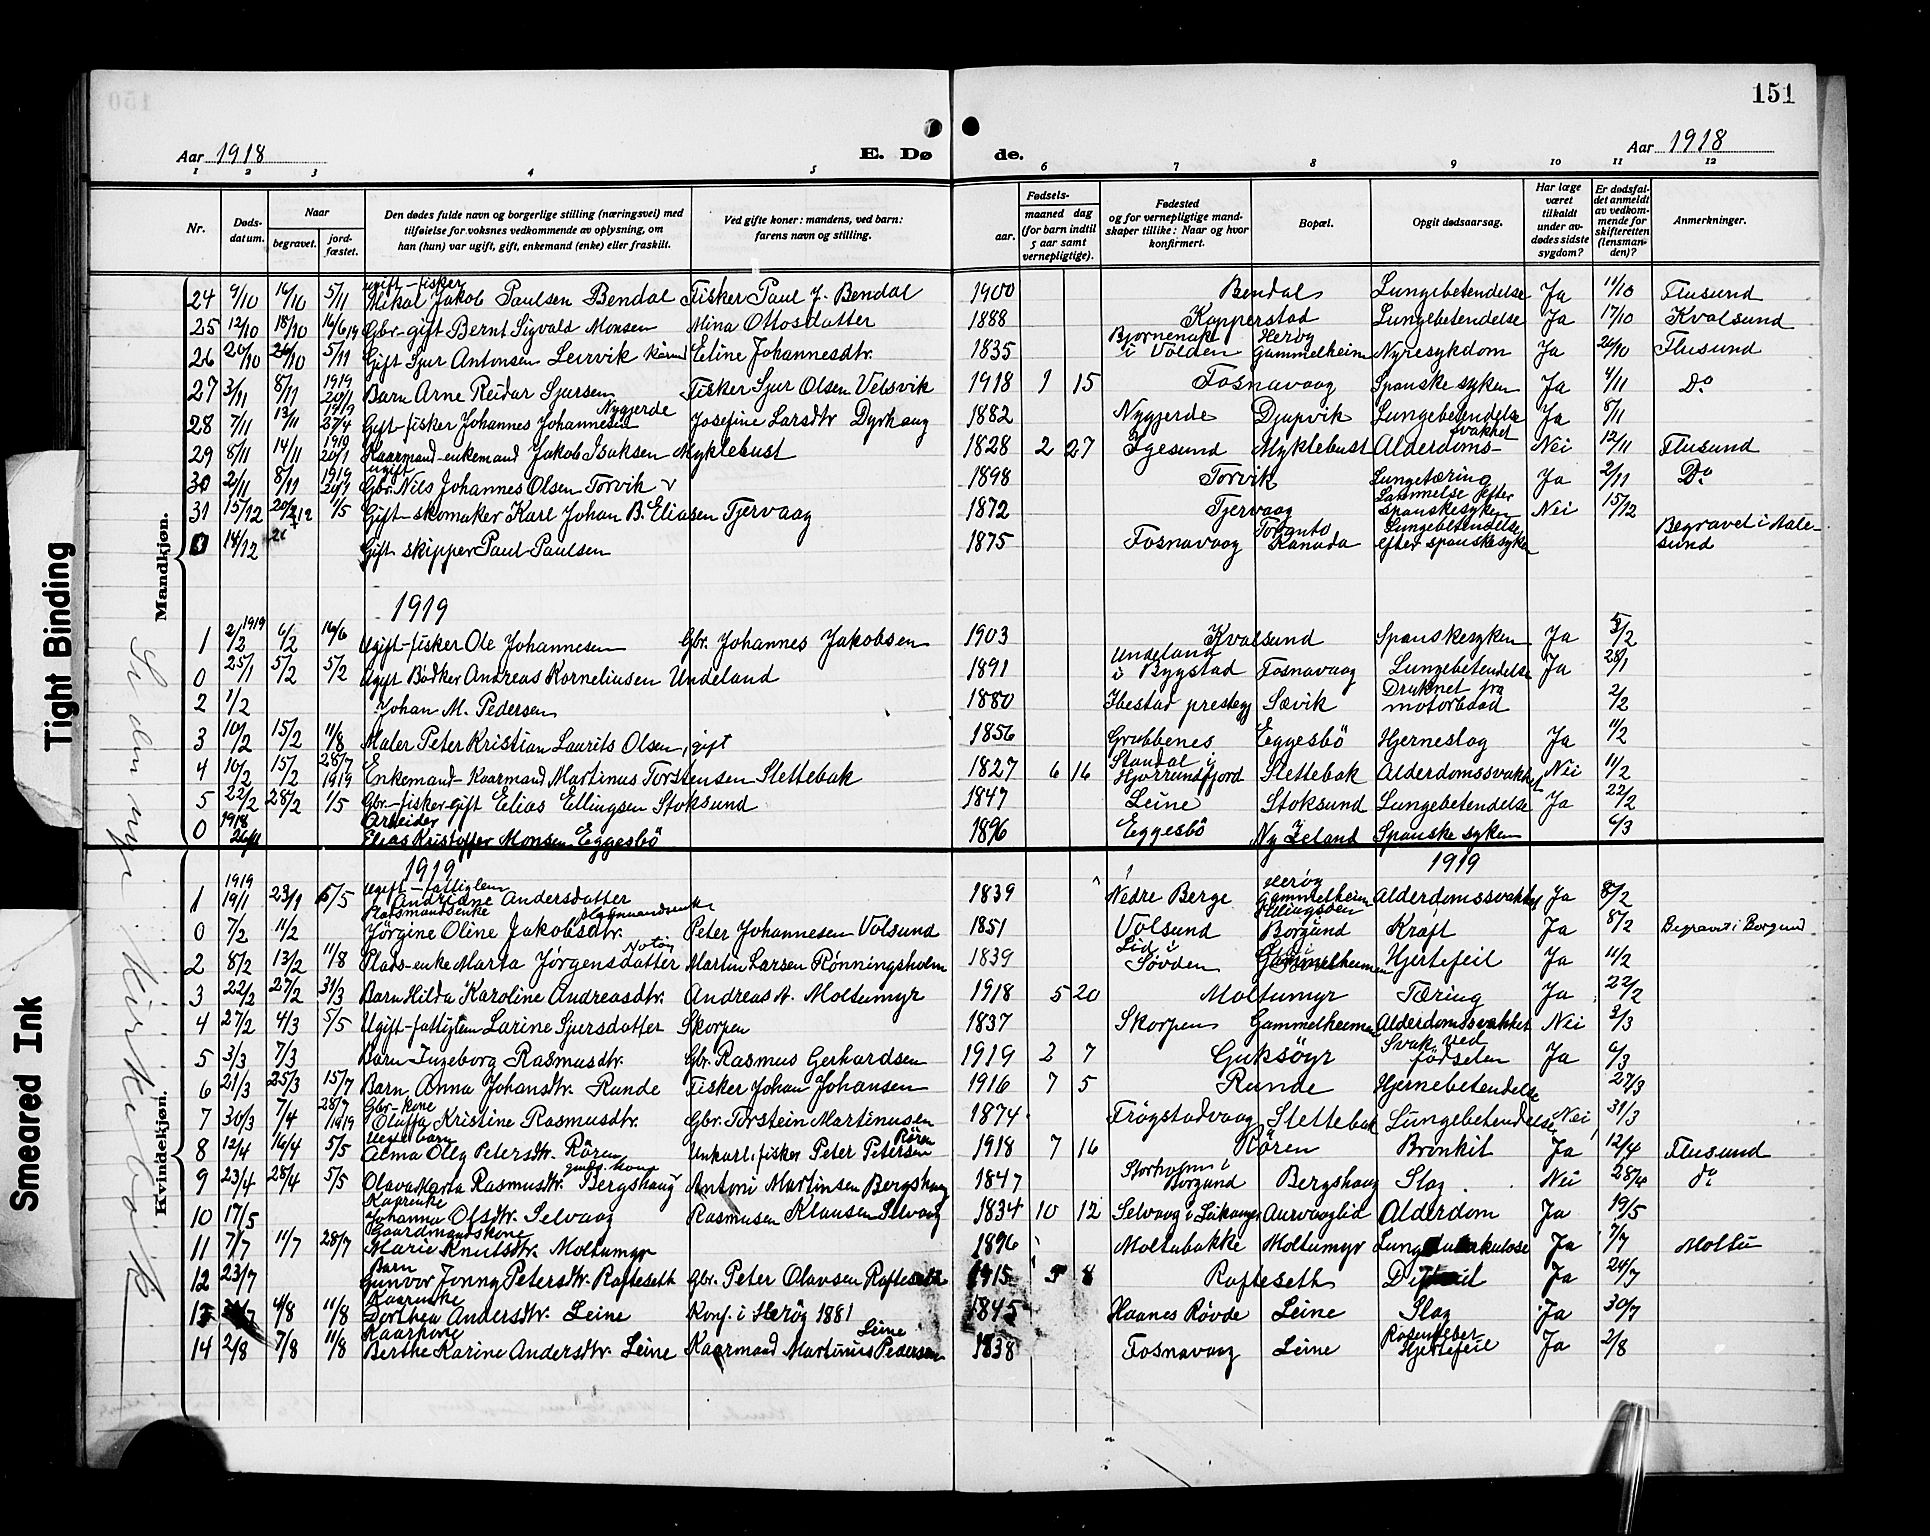 151
Aar 1918
E. Døde.
Aar 1918
1 2 3 4 5 6 7 8 9 10 11 12
Nr.
Døds-datum.
Naar
begravet.
jord-fæstet.
Den dødes fulde navn og borgerlige stilling (næringsvei) med tilføielse for voksnes vedkommende av oplysning, om han (hun) var ugift, gift, enkemand (enke) eller fraskilt.
Ved gifte koner: mandens, ved barn: farens navn og stilling.
Fødsels-
aar.
maaned dag
(for barn indtil 5 aar samt vernepligtige).
Fødested og for vernepligtige mandskaper tillike: Naar og hvor konfirmert.
Bopæl.
Opgit dødsaarsag.
Har læge været tilkaldt under avdødes sidste sygdom?
Er dødsfaldet anmeldt av vedkommende for skifteretten (lensmanden)?
Anmerkninger.
Mandkjøn.
24 9/10 16/10 5/11 ugift-fisker Mikal Jakob Paulsen Bendal Fisker Paul J. Bendal 1900 Bendal Lungebetendelse Ja 11/10 Flusund
25 12/10 18/10 16/6 19 Gbr. gift Bernt Sigvald Monsen Mina Ottosdatter 1888 Kopperstad Lungebetendelse Ja 17/10 Kvalsund
26 20/10 26/10 5/11 Gift Sjur Antonsen Leirvik Eline Johannesdtr. 1835 i Volden Herøy Gammelheim Nyresykdom Ja 26/10 Flusund
27 3/11 8/11 1919 20/1 Barn Arne Reidar Sjursen Fisker Sjur Olsen Velsvik 1918 1 15 Fosnavaag Spanske syken Ja 4/11 Do
28 7/11 13/11 1919 27/4 Gift-fisker Johannes Johannesen Nygjerde Josefine Larsdtr Dyrhaug 1882 Nygjerde Djupvik Lungebetendelse Ja 8/11
29 8/11 14/11 1919 20/1 Kaarmand-enkemand Jakob Isaksen Myklebust 1828 2 27 Igesund Myklebust Alderdoms-svakhet Nei 12/11 Flusund
30 2/11 8/11 1919 20/1 ugift Gbr. Nils Johannes Olsen Torvik 1898 Torvik Lungetæring Ja 2/11 Do
31 15/12 20/12 1/5 Gift-skomaker Karl Johan B. Eliasen Tjervaag 1872 Tjervaag Lammelse efter spanskesyken Nei 15/12
0 14/12 Gift skipper Paul Paulsen 1875 Fosnavaag Toronto Kanada Lungebetendelse efter spanskesyken Begravet i Aalesund
1919
1 2/2 1919 6/2 16/6 Ugift-fisker Ole Johannesen Gbr. Johannes Jakobsen 1903 Kvalsund Spanskesyken Ja 3/2
0 25/1 5/2 5/2 Ugift Bödker Andreas Korneliusen Undeland 1891 Undeland i Bygstad Fosnavaag Lungebetendelse Ja 28/1
2 1/2 Johan M. Pedersen 1880 Ibestad prestegj Sævik Druknet fra motorbaad 2/2
3 10/2 15/2 11/8 Maler Peter Kristian Laurits Olsen, gift 1856 Grubbenes Eggesbö Hjerneslag Ja 11/2
4 10/2 15/2 28/7 1919 Enkemand-Kaarmand Martinus Torstensen Slettebak 1827 6 16 Standal i Hjørrundfjord Slettebak Alderdomssvakhet Nei 11/2
5 22/2 28/2 1/5 Gbr-fisker gift Elias Ellingsen Stoksund 1847 Leine Stoksund Lungebetendelse Ja 22/2
0 1918 26/11 Arbeider Elias Kristoffer Monsen Eggesbö 1896 Eggesbö Ny Zeland Spanske syken 6/3
Kvindekjøn.
1919
1919
1 1919 19/1 23/1 5/5 Ugift-fattiglem Andriane Andersdatter 1839 Nedre Berge Herøy Gammelheim Alderdomssvakhet Ja 8/2
0 7/2 11/2 Pladsmandsenke Jörgine Oline Jakobsdtr. Peter Johannesen Volsund 1851 Volsund Ellingsøen Borgund Kræft Ja 8/2 Begravet i Borgund
2 8/2 13/2 11/8 Plads-enke Marta Jørgensdatter Notøy Martin Larsen Rönningsholm 1839 Lid i Søvden Gammelheimen Hjertefeil Ja 11/2
3 22/2 27/2 31/3 Barn Hilda Karoline Andreasdtr. Andreas A. Moltumyr 1918 5 20 Moltumyr Tæring Ja 22/2
4 27/2 4/3 5/5 Ugift-fattiglem Larine Sjursdatter Skorpen 1837 Skorpen Gammelheimen Alderdomssvakhet Nei 3/3
5 3/3 7/3 Barn Ingeborg Rasmusdtr. Gbr. Rasmus Gerhardsen 1919 2 7 Guksöyr Svak ved fødselen Ja 6/3
6 21/3 25/3 15/7 Barn Anna Johansdtr. Runde Fisker Johan Johansen 1916 7 5 Runde Hjernebetendelse 27/3
7 30/3 7/4 28/7 1919 Gbr-kone Oluffa Kristine Rasmusdtr. Gbr. Torstein Martinusen 1874 Frøgstadvaag Slettebak Lungebetendelse Nei 31/3
8 12/4 16/4 5/5 Uegte barn Alma Oleg Petersdtr. Rören Unkarl, fisker Peter Petersen Rören 1918 7 16 Rören Bronkit Ja 12/4 Flusund
9 23/4 28/4 5/5 Olava Marta Rasmusdtr. Bergshaug Antoni Martinsen Bergshaug 1847 Storholm i Borgund Bergshaug Slag Nei 28/4 do
10 17/5 Kaarenke Johanna Olsdtr. Selvaag Rasmusen Klausen Selvaag 1834 10 12 Selvaag i Leikanger Aurvaaglid Alderdom Ja 19/5
11 7/7 11/7 28/7 Gaardmandskone Marie Knutsdtr. Moltumyr 1896 Moltubakke Moltumyr Ja 7/7 Moltu
12 23/7 Barn Gunvor Jonny Petersdtr. Rafteseth Gbr. Peter Olavsen Rafteseth 1915 5 8 Rafteseth Ja 24/7
13 4/8 11/8 Kaarenke Dorthea Andersdtr. Leine Konf. i Herøy 1881 1845 Haanes Rövde Leine Slag Ja 30/7
14 2/8 7/8 11/8 Kaarkone Berthe Karine Andersdtr. Leine Kaarmand Martinus Pedersen Leine 1838 Fosnavaag Leine Hjertefeil Ja 2/8
Tight Binding
Smeared Ink